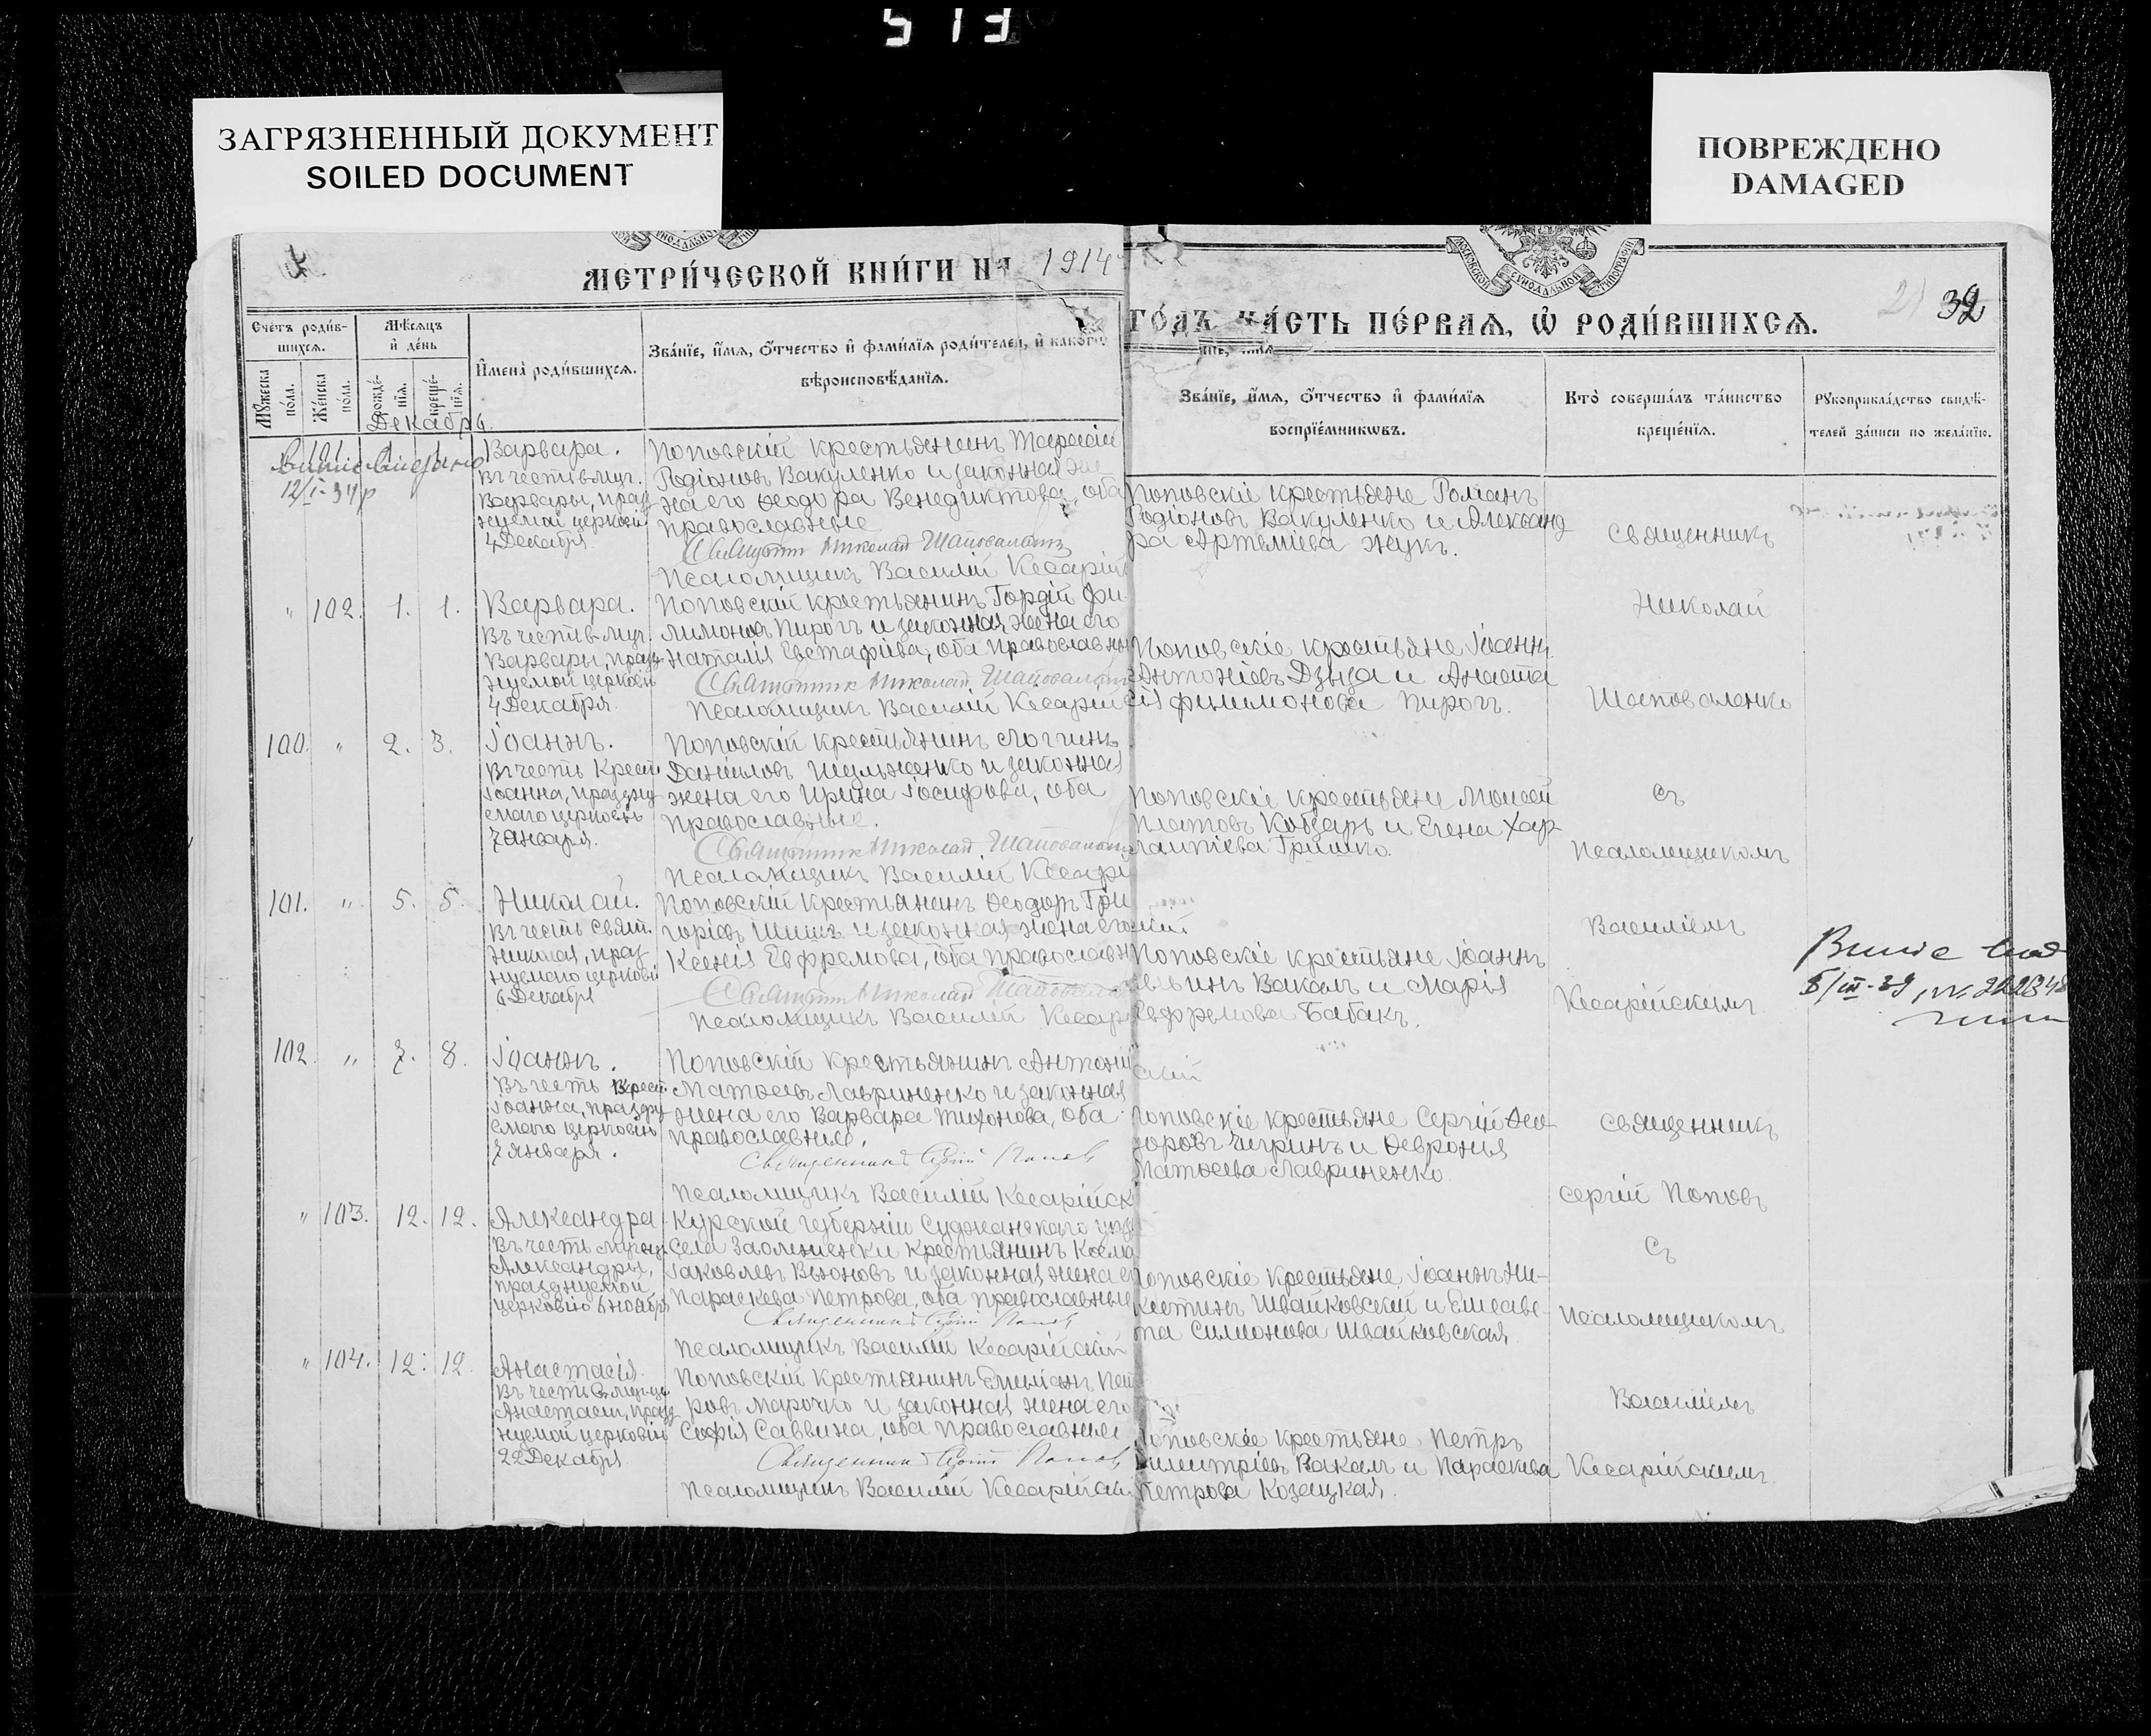 513
ЗАГРЯЗНЕННЫЙ ДОКУМЕНТ
SOILED DOCUMENT
ПОВРЕЖДЕНО
DAMAGED
МЕТРИ́ЧЕСКОЙ КНИ́ГИ НА 1914
ГО́ДЪ ЧА́СТЬ ПЕ́РВАЯ, Ѽ РОДИ́ВШИХСЯ.
32
Сче́тъ роди́в-
шихся.
Мꙋжеска по́ла.
Же́нска по́ла.
Мѣ́сяцъ
и҆ де́нь
рожде́-
нїя.
креще́-
нїя.
И҆мена̀ роди́вшихся.
Зва́нїе, и҆́мя, ѻ҆́тчество и҆ фами́лїя роди́телей, и҆ какогѡ
вѣроисповѣ́данїя.
Зва́нїе, и҆́мя, ѻ҆́тчество и҆ фами́лїя
воспрїе́мникѡвъ.
Кто̀ соверша́лъ та́инство
креще́нїя.
Рꙋкоприкла́дство свидѣ́-
телей за́писи по жела́нїю.
Декабрь.
101. 1. 1.
12/I-34р
Варвара.
Въ честь в-муч.
Варвары, празд
нуемой церковію
4 Декабря.
Поповскій крестьянинъ Тарасій
Родіоновъ Вакуленко и законная же
на его Ѳеодора Венедиктова, оба
православные
Священник Николай Шаповаленко
Псаломщикъ Василій Кесарій
Поповскіе крестьяне Романъ
Родіоновъ Вакуленко и Александ
ра Артемиева Жукъ.
Священникъ
" 102. 1. 1.
Варвара.
Въ честь в-муч.
Варвары, празд
нуемой церковію
4 Декабря.
Поповскій крестьянинъ Гордій Фи
лимоновъ Пирогъ и законная жена его
Наталія Евстафіева, оба православны
Священник Николай Шаповаленко
Псаломщикъ Василій Кесарій
Поповскіе крестьяне Іоаннъ
Антоніевъ Дзыза и Анаста
сія Филимонова Пирогъ.
Николай
Шаповаленко
100. " 2. 3.
Іоаннъ.
Въ честь Крест.
Іоанна, праздну
емаго церковью
7 января.
Поповскій крестьянинъ Логгинъ
Даніиловъ Шульженко и законная
жена его Ирина Іосифова, оба
православные.
Священник Николай Шаповаленко
Псаломщикъ Василій Кесарі
Поповскіе крестьяне Моисей
Платовъ Кобзарь и Елена Хар
лампіева Гришко.
съ
Псаломщикомъ
101. " 5. 5.
Николай.
Въ честь Свят.
Николая, празд
нуемаго церковію
6 Декабря
Поповскій крестьянинъ Ѳеодоръ Гри
горіевъ Шишъ и законная жена его
Ксенія Евфремова, оба православн
Священник Николай Шаповаленко
Псаломщикъ Василій Кесар
Поповскіе крестьяне Іоаннъ
Вакалъ и Марія
Евфремова Бабакъ.
Василіемъ
Кесарійскимъ
5/III-39
102. " 7. 8.
Іоаннъ.
Въ честь Крест.
Іоанна, праздну
емаго церковію
7 января.
Поповскій крестьянинъ Антоній
Матѳеевъ Лавриненко и законная
жена его Варвара Тихонова, оба
православные.
Священникъ Сергій Поповъ
Псаломщикъ Василій Кесарійск
Поповскіе крестьяне Сергій Ѳео
доровъ Чигринъ и Ѳевронія
Матѳеева Лавриненко.
Священникъ
Сергій Поповъ
" 103. 12. 12.
Александра
Въ честь муч-цы
Александры,
празднуемой
церковію 6 ноября
Курской губерніи Суджанскаго уѣзд
села Заолешенки крестьянинъ Косма
Іаковлевъ Вьюновъ и законная жена е
Параскева Петрова, оба православные
Священникъ Сергій Поповъ
Псаломщикъ Василій Кесарійскій
Поповскіе крестьяне, Іоаннъ Ни-
китинъ Швайковскій и Елисаве-
та Симонова Швайковская.
съ
Псаломщикомъ
" 104. 12. 12.
Анастасія.
Въ честь в-муч-цы
Анастасіи, празд
нуемой церковію
22 Декабря
Поповскій крестьянинъ Емиліанъ Пет
ровъ Марочко и законная жена его
Софія Саввина, оба православные
Священникъ Сергій Поповъ
Псаломщикъ Василій Кесарійскі
Поповскіе крестьяне Петръ
Димитріевъ Вакалъ и Параскева
Петрова Козацкая.
Василіемъ
Кесарійскимъ